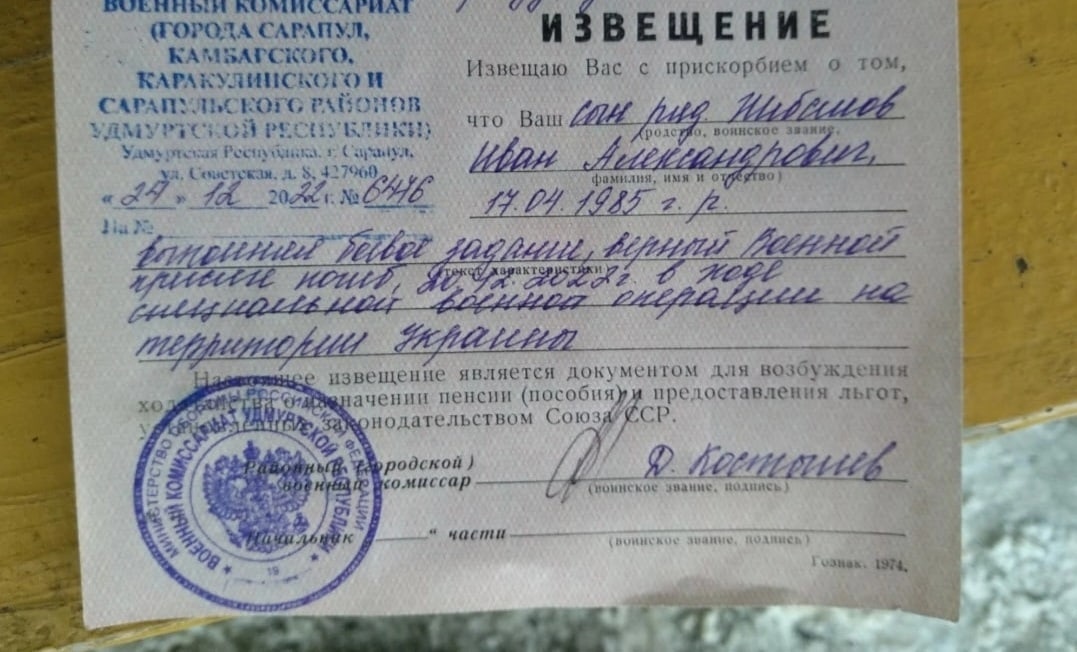 ВОЕННЫЙ КОМИССАРИАТ
(ГОРОДА САРАПУЛ,
КАМБАРСКОГО,
КАРАКУЛИНСКОГО И
САРАПУЛЬСКОГО РАЙОНОВ
УДМУРТСКОЙ РЕСПУБЛИКИ)
Удмуртская Республика, г. Сарапул,
ул. Советская, д. 8, 427960
"27" 12 2022 г. № 6476
На №
ИЗВЕЩЕНИЕ
Извещаю Вас с прискорбием о том,
что Ваш сын ряд
(родство, воинское звание,
Иван Александрович,
фамилия, имя и отчество)
17.04.1985 г. р.
выполняя боевое задание, верный Военной
присяге погиб, 20.12.2022г. в ходе
(текст характеристики)
специальной военной операции на
территории Украины
Настоящее извещение является документом для возбуждения
ходатайства о назначении пенсии (пособия) и предоставления льгот,
установленных законодательством Союза ССР.
Районный (городской)
военный комиссар Д. Костылев
(воинское звание, подпись)
Начальник " части
(воинское звание, подпись)
Гознак. 1974.
МИНИСТЕРСТВО ОБОРОНЫ РОССИЙСКОЙ ФЕДЕРАЦИИ
ВОЕННЫЙ КОМИССАРИАТ УДМУРТСКОЙ РЕСПУБЛИКИ
19